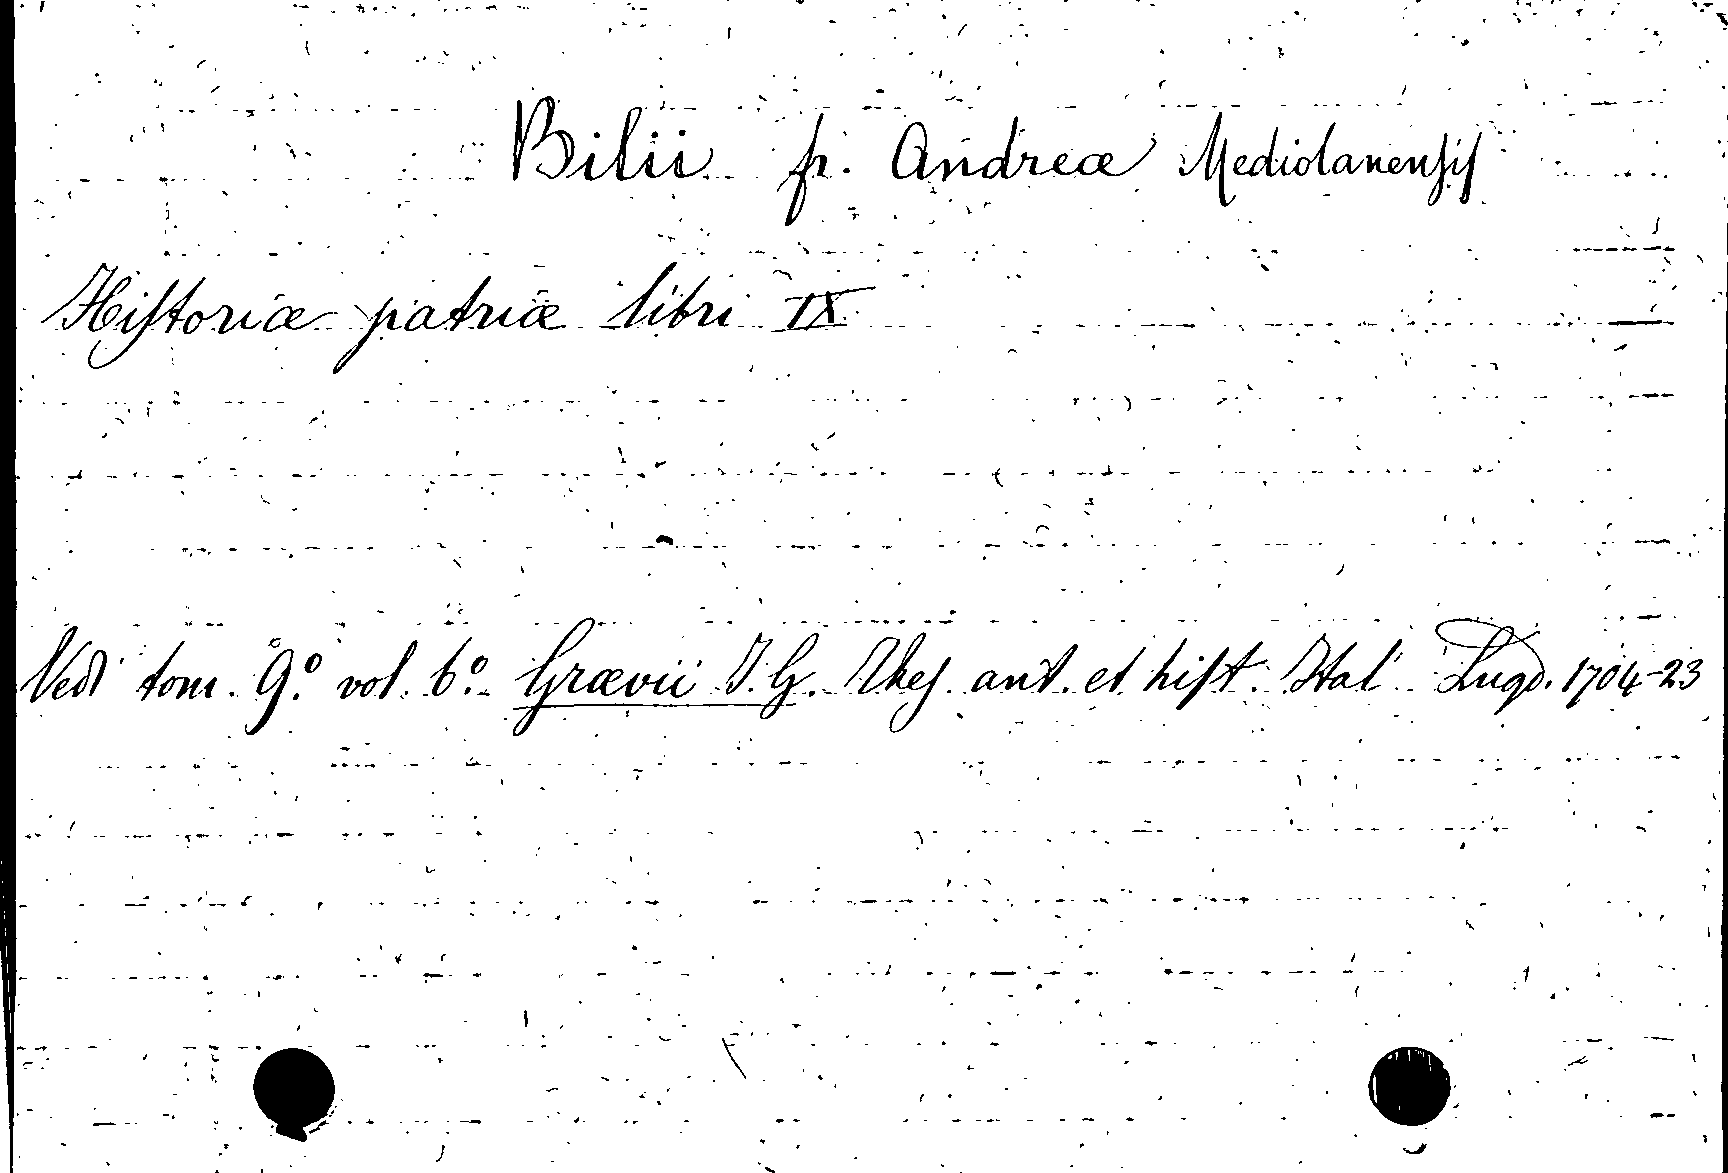 Bilii fr. Andreæ Mediolanensis
Historiæ patriæ libri IX
Vedi tom. 9.º vol. 6º. Grævii J. G. Thes. ant. et hist. Ital. Lugd. 1704-23